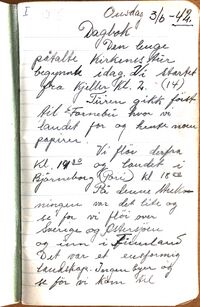 I
Onsdag 3/6-42.
Dagbok
Den lenge
påtalte Kirkenes tur
begynte idag. Vi startet
fra Kjeller Kl. 2. (14)
Turen gikk først
til Fornebu hvor vi
landet for og hente noen
papirer.
Vi fløi derfra
Kl. og landet i
Bjørneborg (Pori) Kl 18
På denne strek-
ningen var det lite og
se, for vi fløi over
Sverige og Østersjøen
og inn i Finnland
Det var et ensformig
landskap. Ingen byer og
se før vi kom til